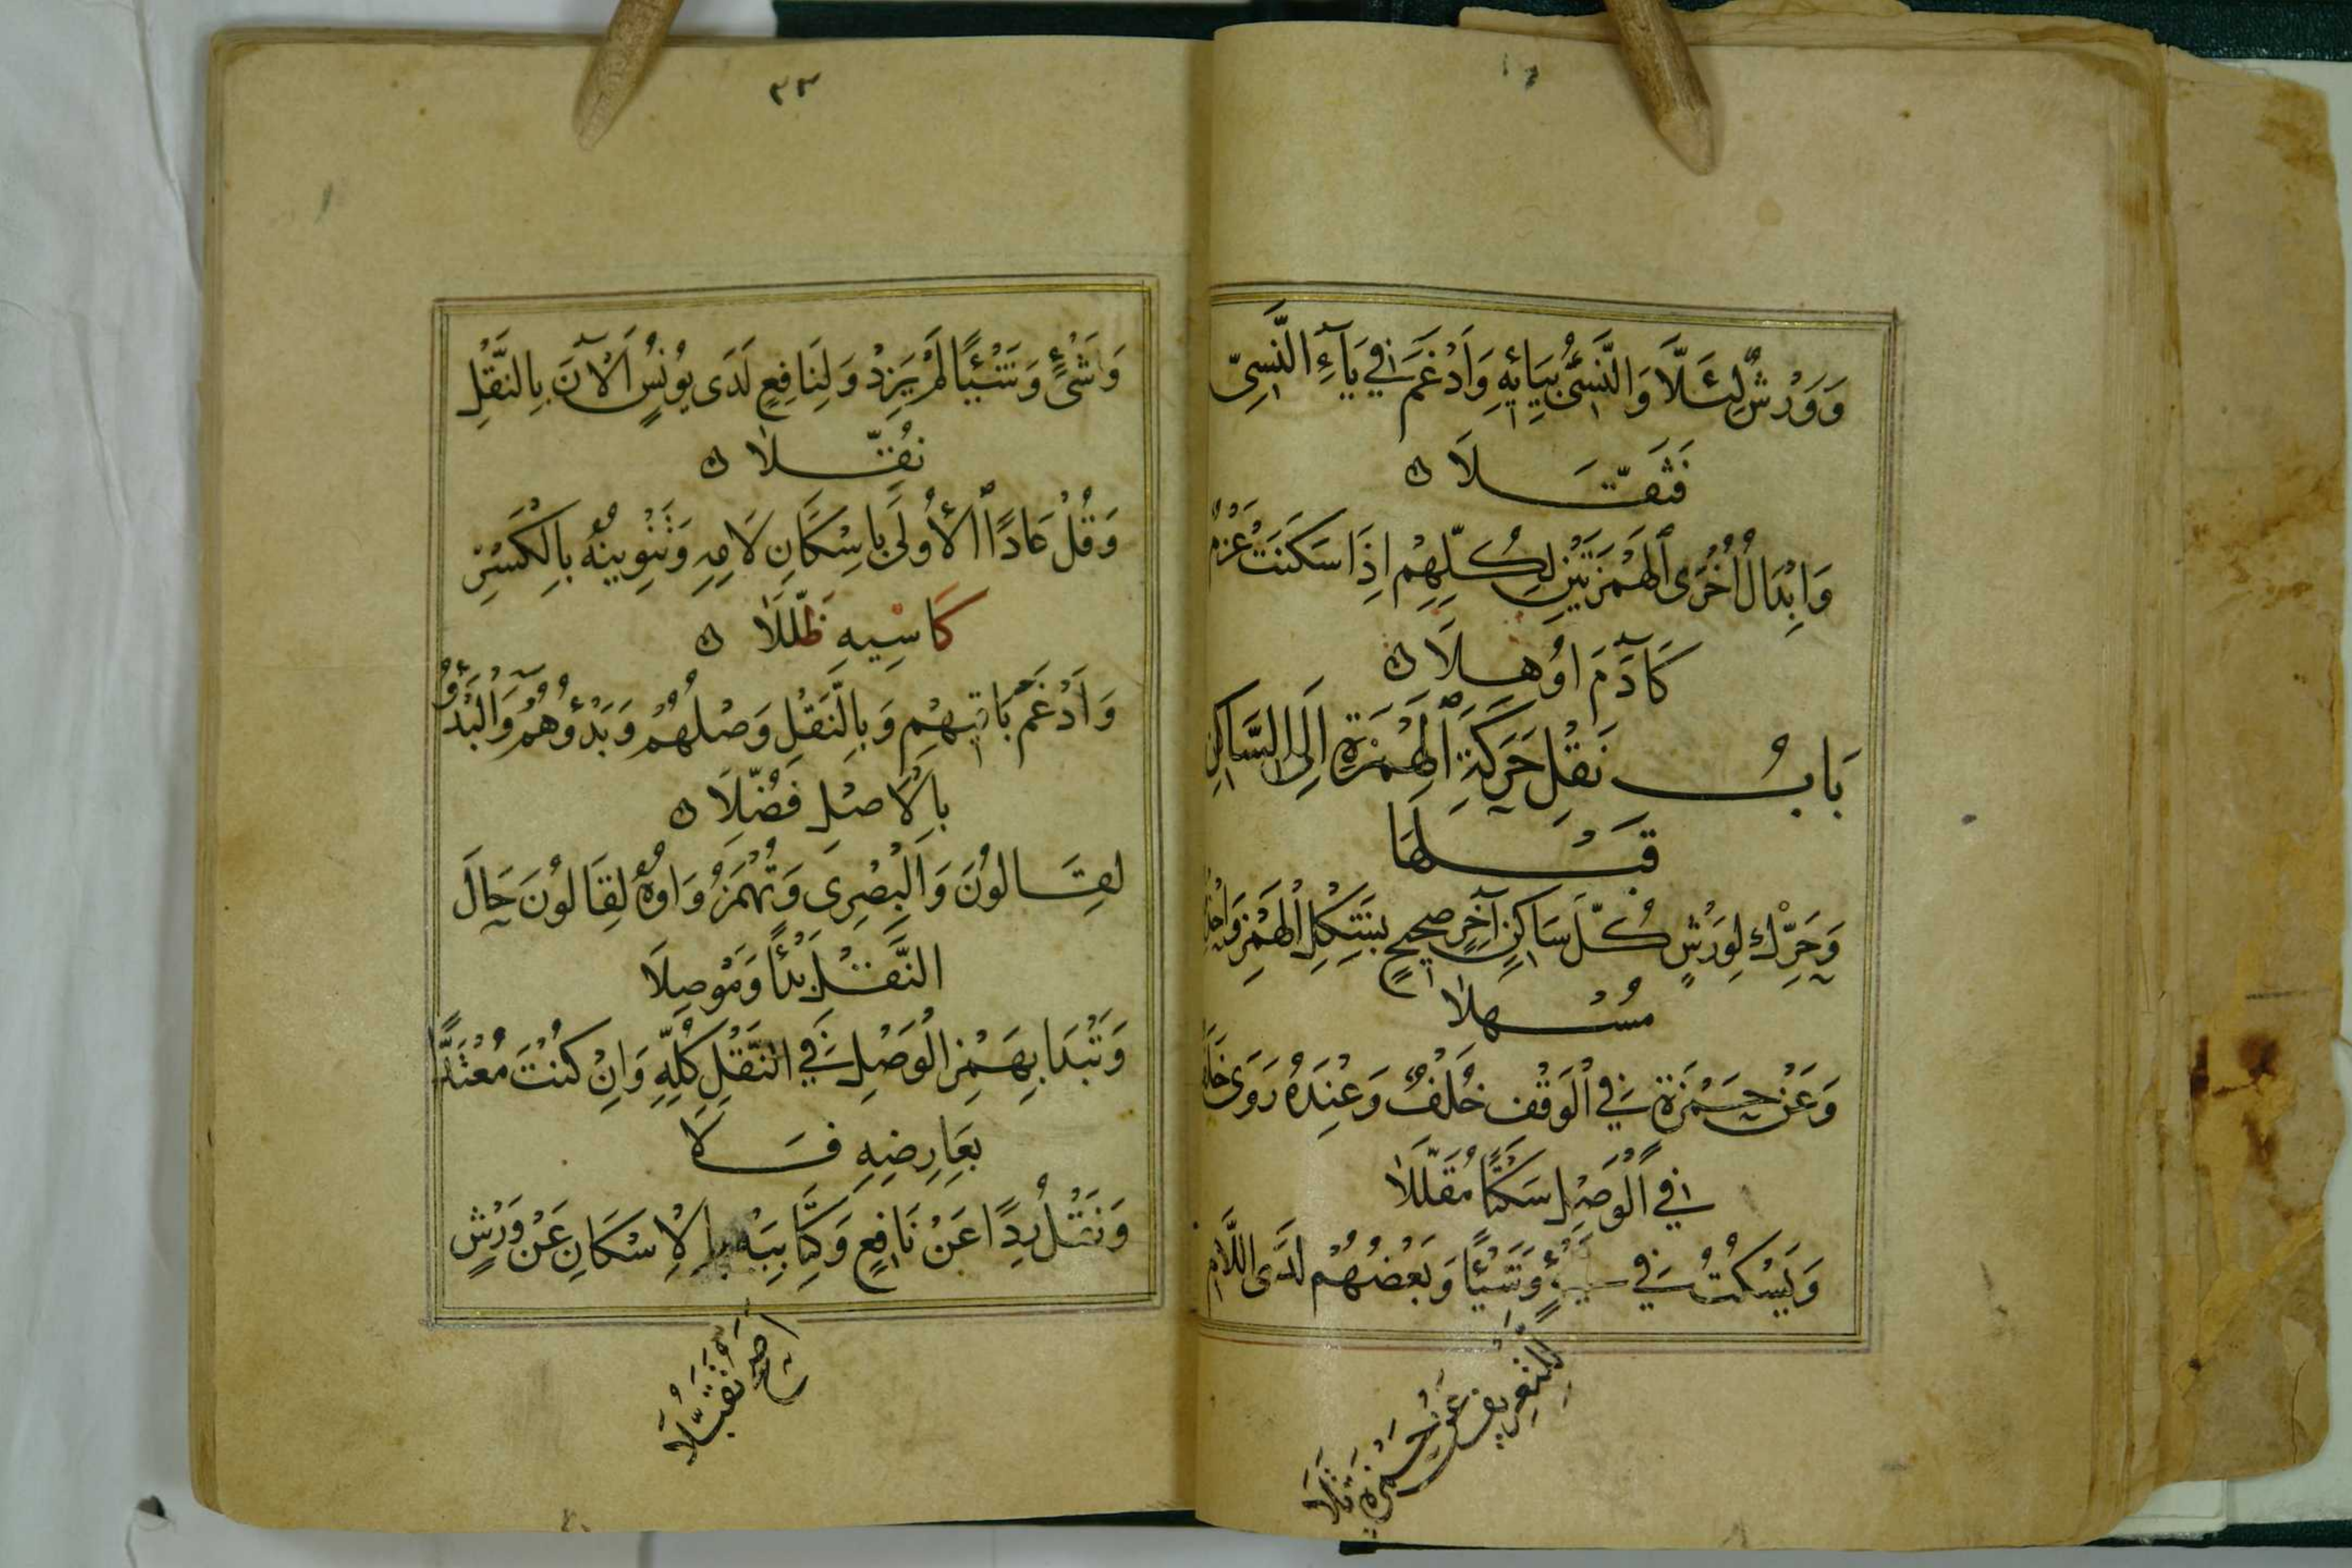 وَوَرْشٌ لِئَلَّا وَالنَّسِئُ بِيَائِهِ وَأَدْغَمَ فِي يَآءِ النَّسِيِّ
فَثَقَّلَا
وَاِبْدَالُ اُخْرَى ٱلْهَمْزَتَيْنِ لِكُلِّهِمْ اِذَا سَكَنَتْ عَزْمٌ
كَآدَمَ اُوهِلَا
بَابُ نَقْلِ حَرَكَةِ ٱلْهَمْزَةِ اِلَى السَّاكِنِ
قَبْلَهَا
وَحَرِّكْ لِوَرْشٍ كُلَّ سَاكِنٍ آخِرٍ صَحِيحٍ بِشَكْلِ الْهَمْزِ وَاحْذِفْهُ
مُسْهِلَا
وَعَنْ حَمْزَةٍ فِي الْوَقْفِ خُلْفٌ وَعِنْدَهُ رَوَى خَلَفٌ
فِي الْوَصْلِ سَكْتًا مُقَلَّلَا
وَيَسْكُتُ فِي شَيْءٍ وَشَيْئًا وَبَعْضُهُمْ لَدَى اللَّامِ
لِلتَّعْرِيفِ عَنْ حَمْزَةٍ تَلَا
٣٣
وَشَيْءٍ وَشَيْئًا لَمْ يَزِدْ وَلِنَافِعٍ لَدَى يُونُسٍ اَلْآنَ بِالنَّقْلِ
نُقِّلَا
وَقُلْ عَادًا ٱلْأُولَى بِاِسْكَانِ لَامِهِ وَتَنْوِينُهُ بِالْكَسْرِ
كَاسِيهِ ظَلَّلَا
وَاَدْغَمَ بَاقِيهِمْ وَبِالنَّقْلِ وَصْلُهُمْ وَبَدْؤُهُمُ وَالْبَدْؤُ
بِالْاَصْلِ فُضِّلَا
لِقَالُونَ وَالْبَصْرِى وَتُهْمَزُ وَاوُهُ لِقَالُونَ حَالَ
النَّقْلِ بَدْئًا وَمَوْصِلَا
وَتَبْدَا بِهَمْزِ الْوَصْلِ فِي النَّقْلِ كُلِّهِ وَاِنْ كُنْتَ مُعْتَدًّا
بِعَارِضِهِ فَلَا
وَنَقْلُ رِدًا عَنْ نَافِعٍ وَكِتَابِيَهْ بِالْاِسْكَانِ عَنْ وَرْشٍ
اَصَحُّ تَقَبُّلَا